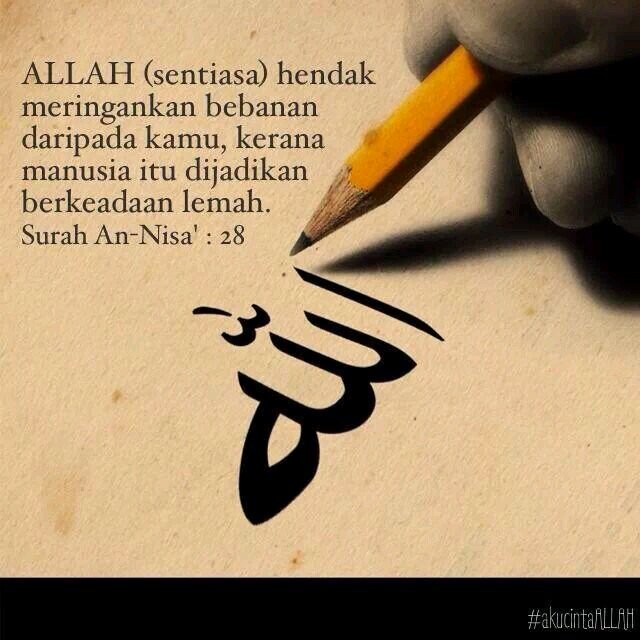 ALLAH (sentiasa) hendak
meringankan bebanan
daripada kamu, kerana
manusia itu dijadikan
berkeadaan lemah.
Surah An-Nisa' : 28
الله
#akucintaALLAH